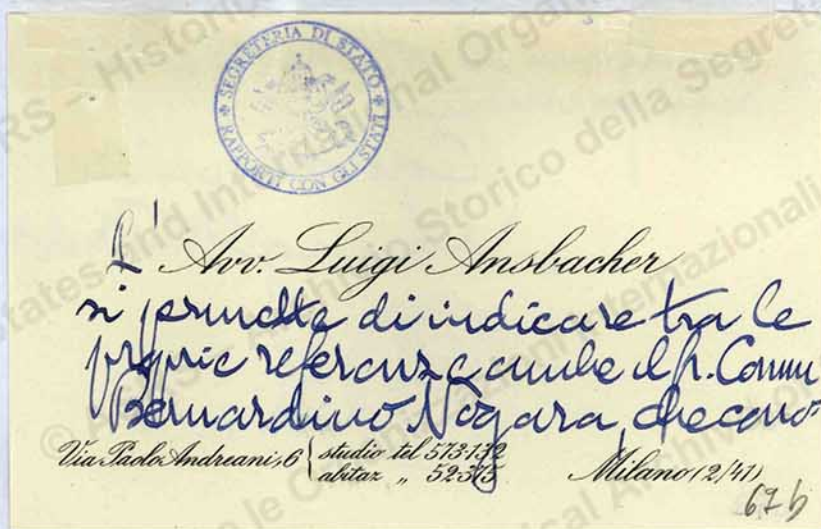 SEGRETERIA DI STATO
RAPPORTI CON GLI STATI
L' Avv. Luigi Ansbacher
si permette di indicare tra le
proprie referenze anche il Comm
Bernardino Nogara, che cono
Via Paolo Andreani, 6 studio tel 573-132
abitaz „ 52-375 Milano (2/41)
67 b